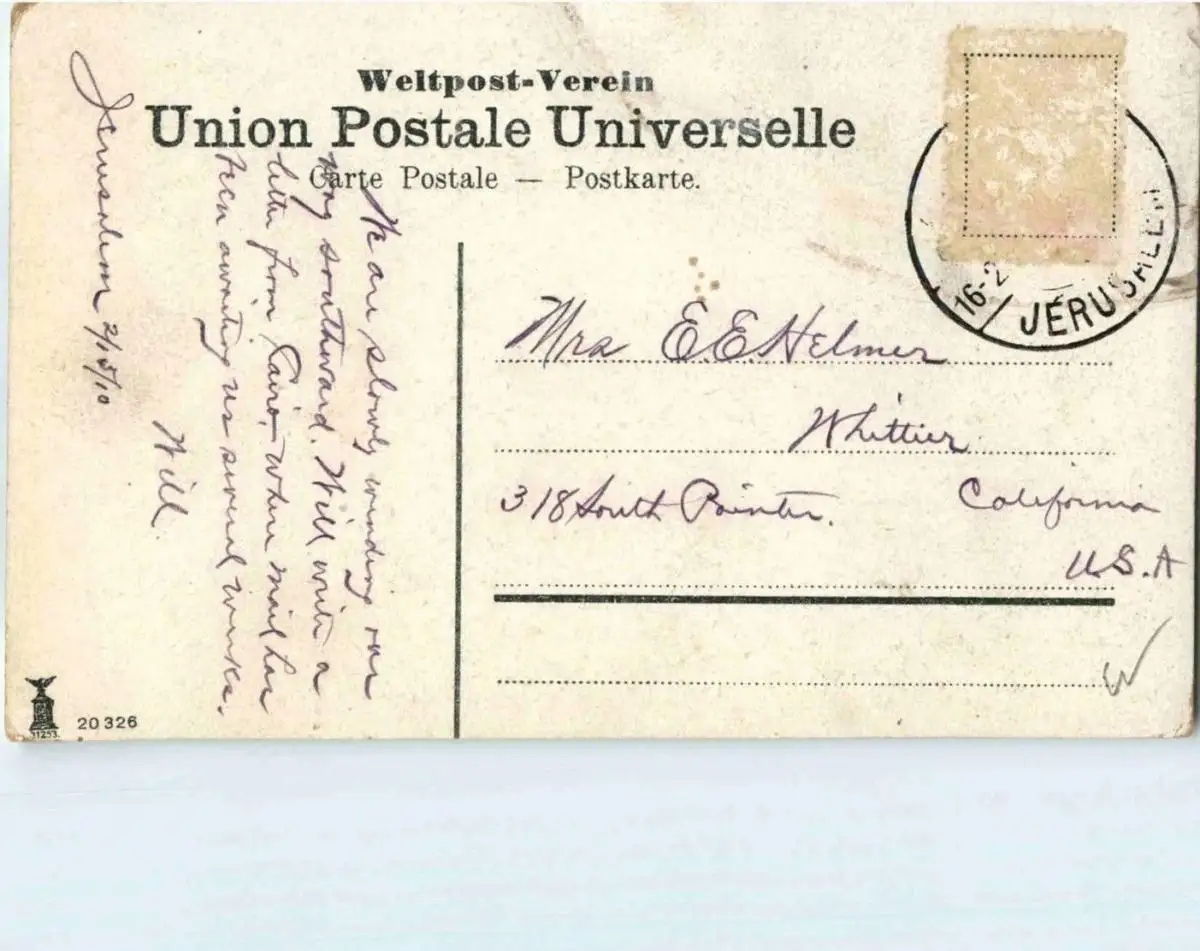 Weltpost-Verein
Union Postale Universelle
Carte Postale — Postkarte.
Jerusalem 2/15/10
We are slowly winding our
way southward. Will write a
letter from Cairo where mail has
been awaiting us several weeks.
Will
16-2
JÉRUSALEM
Mrs E. E. Helmer
Whittier
318 South Painter.
California
U.S.A
20326
11253.